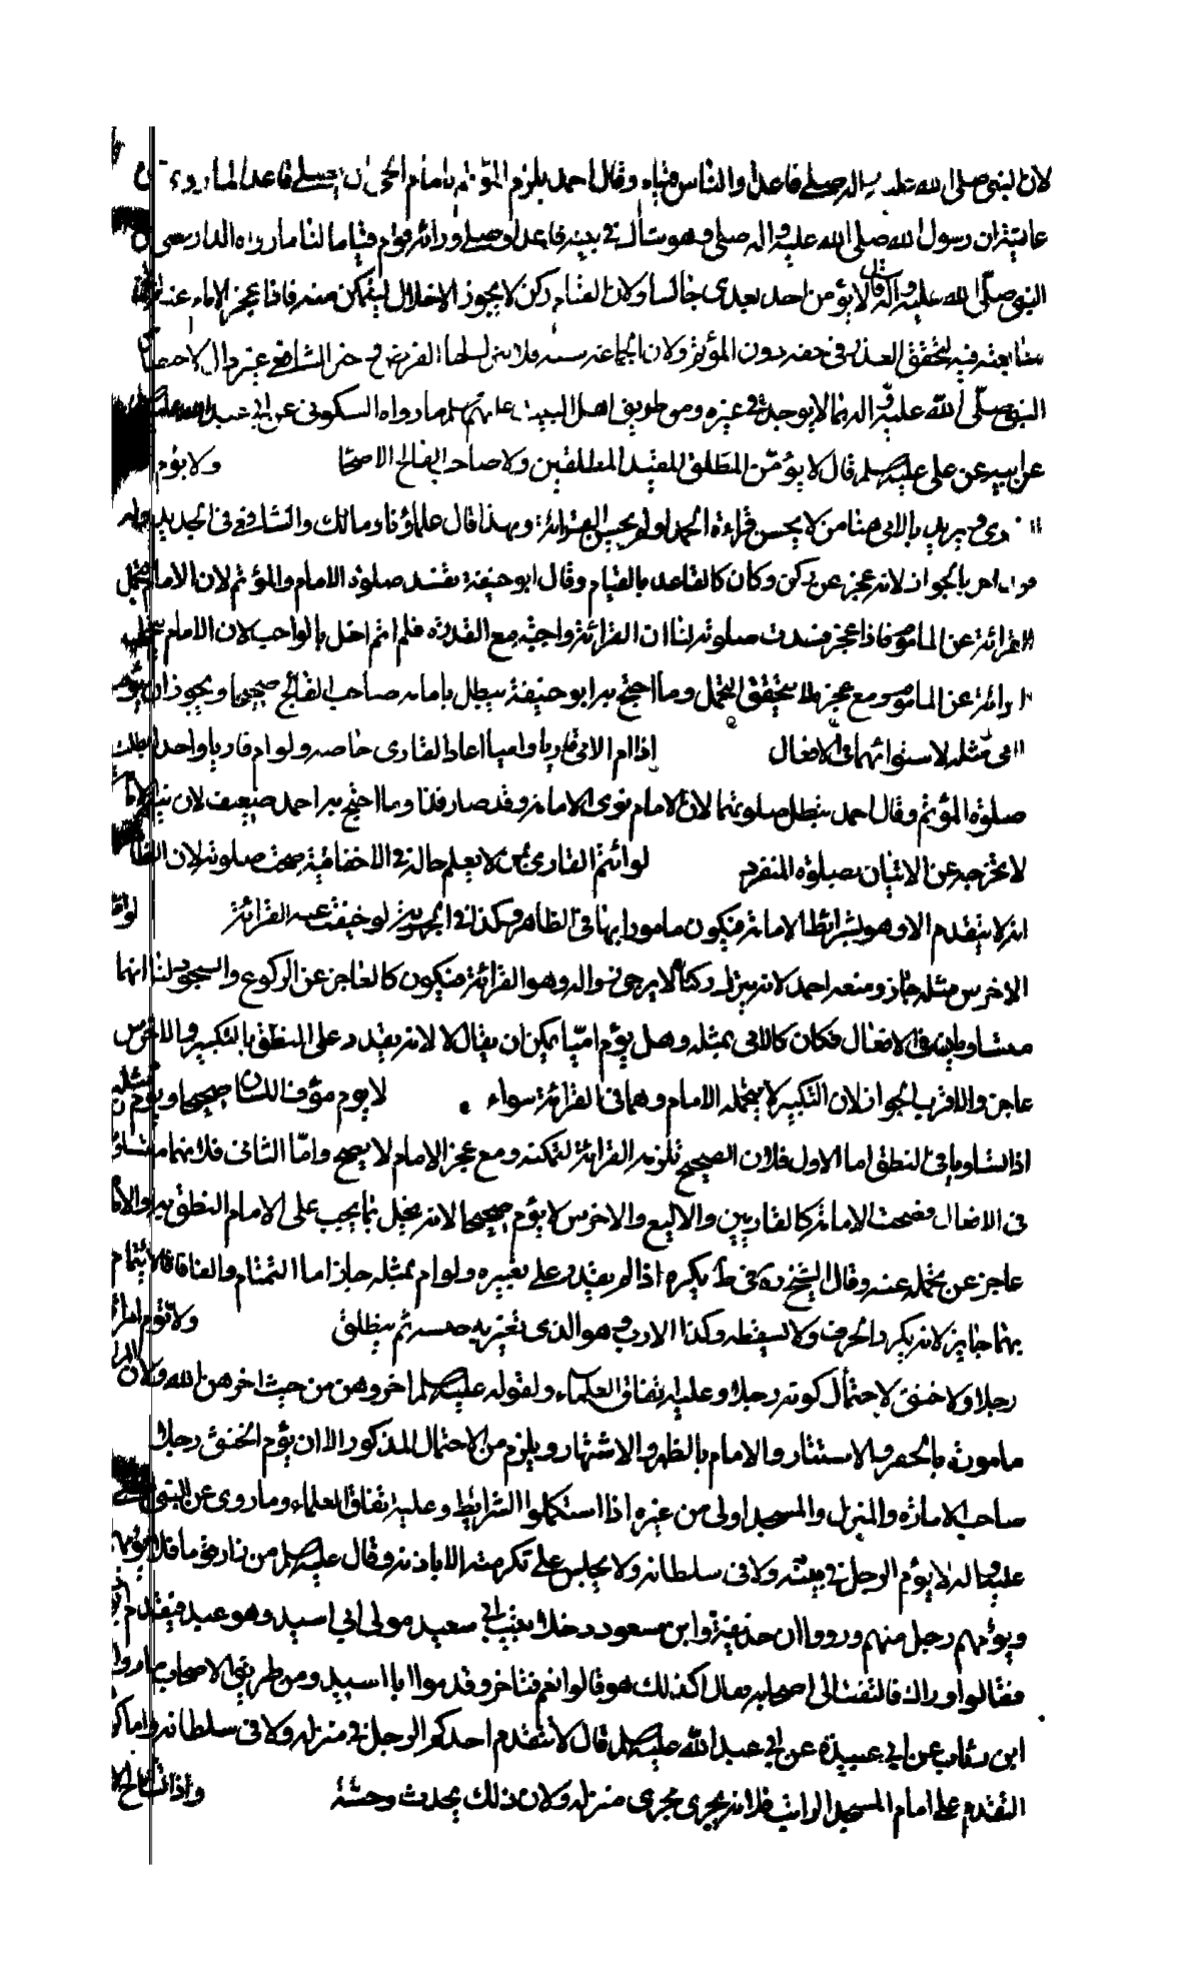 لان النبي صلى الله عليه واله صلى قاعدا والناس قيام وقال احمد يلزم المؤتم بامام الحي ان يصلى قاعدا لما روى
عايشة ان رسول الله صلى الله عليه واله صلى وهو شاك في بيته قاعدا وصلى ورائه قوم قياما لنا ما رواه الدارمى
النبي صلى الله عليه واله قال لا يؤمن احد بعدى جالسا ولان القيام ركن لا يجوز الاخلال لمتمكن منه فاذا عجز الامام عنه
متابعته فيه لتحقق العذر في حقه دون المؤتم ولان الجماعة سنة فلا يترك لها الفرض
النبي صلى الله عليه واله بما لا يوجد في غيره ومن طريق اهل البيت عليهم السلم ما رواه السكونى عن ابى عبد الله عليه
عن ابيه عن على عليه السلم قال لا يؤمن المطلق المقيد المطلقين ولا صاحب الفالج الاصحا ولا يؤم
ونريد بالامى هنا من لا يحسن قراءة الحمد او لم يحسن القرائة وبهذا قال علماؤنا ومالك والشافعى في الجديد وله
قول اخر بالجواز لانه عجز عن ركن وكان كالقاعد بالقيام وقال ابو حنيفة يفسد صلوة الامام والمؤتم لان الامام يتحمل
القرائة عن الماموم فاذا عجز فسدت صلوته لنا ان القرائة واجبة مع القدرة فلم ائتم اخل بالواجب لان الامام يتحمل
القرائة عن الماموم ومع عجزه لا يتحقق التحمل وما احتج به ابو حنيفة يبطل بامامة صاحب الفالج صحيحا ويجوز ان يؤم
امى مثله لاستوائهما في الافعال اذا ام الامى قاريا واميا اعاد القارى خاصة ولو ام قاريا واحدا بطلت
صلوة المؤتم وقال احمد يبطل صلوتهما لان الامام نوى الامامة وقد صار فذا وما احتج به احمد ضعيف لان نية الامامة
لا تخرجه عن الاتيان بصلوة المنفرد لو ائتم القارى بمن لا يعلم حاله في الاخفاتية صحت صلوته لان الظاهر
انه لا يتقدم الا وهو بشرائط الامامة فيكون مامورا بها في الظاهر وكذا في الجهرية لو خفيت عنه القرائة لو ام
الاخرس مثله جاز ومنعه احمد لانه يترك ركنا لا يرجى زواله وهو القرائة فيكون كالعاجز عن الركوع والسجود لنا انهما
متساويان في الافعال فكان كالامى بمثله وهل يؤم اميا يمكن ان يقال لا لانه يقدر على النطق بالتكبير والاخرس
عاجز والاقرب الجواز لان التكبير لا يتحمله الامام وهما في القرائة سواء لا يوم مؤف اللسان صحيحا ويؤم مثله
اذا تساويا في النطق اما الاول فلان الصحيح تلزمه القرائة لتمكنه ومع عجز الامام لا يصح واما الثانى فلانهما متساويان
في الافعال فصحت الامامة كالقاريين والاليغ والاخرس لا يؤم صحيحا لانه يخل بما يجب على الامام النطق به والامام
عاجز عن تحمله عنه وقال الشيخ ره في ط يكره اذا لم يقدر على تغييره ولو ام بمثله جاز اما التمتام والفافا فالايتمام
بهما جايز لانه يكرر الحرف ولا يسقطه وكذا الارت وهو الذى تغيريه حبسه ثم ينطلق ولا تؤم امراة
رجلا ولا خنثى لاحتمال كونه رجلا وعليه اتفاق العلماء ولقوله عليه السلم اخروهن من حيث اخرهن الله ولان المراة
مامورة بالخفر والاستتار والامام بالظهور والاشتهار ويلزم من الاحتمال المذكور الا ان يؤم الخنثى رجلا
صاحب الامارة والمنزل والمسجد اولى من غيره اذا استكملوا الشرائط وعليه اتفاق العلماء وما روى عن النبي صلى
عليه واله لا يؤم الرجل في بيته ولا في سلطانه ولا يجلس على تكرمته الا باذنه وقال عليه السلم من زار قوما فلا يؤمهم
ويؤمهم رجل منهم ورووا ان حذيفة وابن مسعود دخلا بيت ابى سعيد مولى ابى اسيد وهو عبد فيتقدم
فقالوا وراك فالتفت الى اصحابه فقال اكذلك هو قالوا نعم فتاخر وقدموا ابا اسيد ومن طريق الاصحاب ما رواه
ابن رئاب عن ابى عبيدة عن ابى عبد الله عليه السلم قال لا يتقدم احدكم الرجل في منزله ولا في سلطانه واما
التقدم على امام المسجد الراتب فلانه يجرى مجرى منزله ولان ذلك يحدث وحشة واذا تشاح